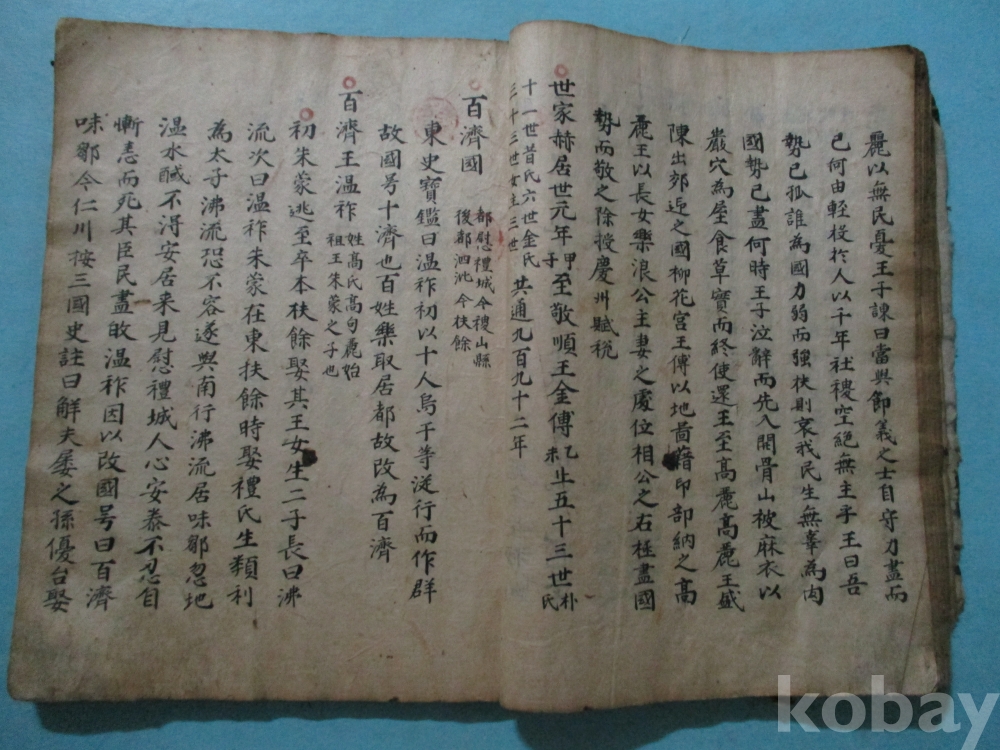 麗以無民憂王子諫曰當與節義之士自守力盡而
已何由輕投於人以千年社稷空絶無主乎王曰吾
勢已孤誰為國力弱而強扶則哀我民生無辜為肉
國勢已盡何時王子泣辭而先入開骨山被麻衣以
巖穴為屋食草實而終使還王至高麗高麗王盛
陳出郊迎之國柳花宮王傳以地啚藉印部納之高
麗王以長女樂浪公主妻之處位相公之右極盡國
勢而敬之除授慶州賦稅
世家赫居世元年甲子至敬順王金傳乙未止五十三世朴氏
十一世昔氏六世金氏
三十三世女主三世
共通九百九十二年
百濟國 都慰禮城今稷山縣
後都泗沘今扶餘
東史寶鑑曰温祚初以十人烏干等従行而作群
故國号十濟也百姓樂取居都故改為百濟
百濟王温祚 姓高氏高句麗始
祖王朱蒙之子也
初朱蒙逃至卒本扶餘娶其王女生二子長曰沸
流次曰温祚朱蒙在東扶餘時娶禮氏生類利
為太子沸流恐不容遂與南行沸流居味鄒忽地
温水醎不得安居来見慰禮城人心安泰不忍自
慚恚而死其臣民盡故温祚因以改國号曰百濟
味鄒今仁川按三國史註曰解夫屡之孫優台娶
kobay